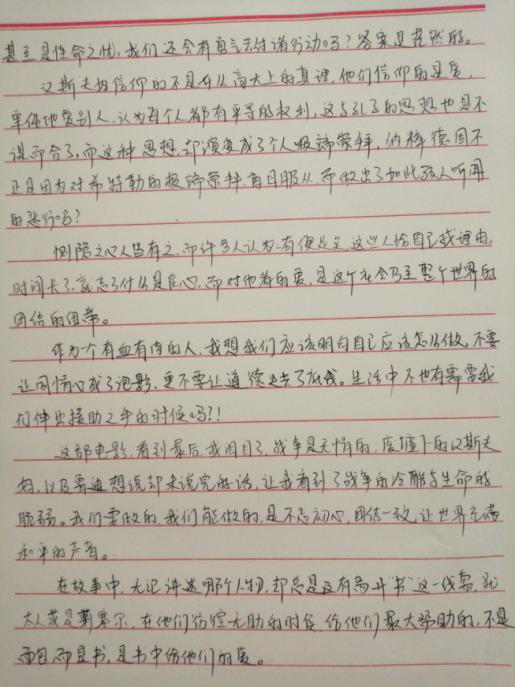 甚至是性命之忧，我们还会有勇气去付诸行动吗？答案是茫然的。
汉斯夫妇信仰的不是什么高大上的真理，他们信仰的是爱，
单纯地爱别人，认为每个人都有平等的权利，这与孔子的思想也是不
谋而合了，而这种思想，却演变成了个人极端崇拜，纳粹德国不
正是因为对希特勒的极端崇拜，盲目服从而做出了如此骇人听闻
的恶行吗？
恻隐之心人皆有之，而许多人认为：有便足矣，这些人给自己找理由，
时间长了，就忘了什么是良心，而对他者的爱，是这个社会乃至整个世界的
团结的纽带。
作为个有血有肉的人，我想我们应该明白自己应该怎么做，不要
让同情心成了泡影，更不要让道德失去了底线。生活中不也有需要我
们伸出援助之手的时候吗？！
这部电影，看到最后，我泪目了，战争是无情的，废墟下的汉斯夫
妇，以及鲁迪想说却未说完的话，让我看到了战争的冷酷与生命的
脆弱。我们要做的，我们能做的，是不忘初心，团结一致，让世界充满
和平的声音。
在故事中，无论讲述哪个人物，却总是没有离开“书”这一线索，犹
太人或是莉赛尔，在他们彷徨无助的时候，给他们最大帮助的，不是
面包，而是书，是书中给他们的爱。